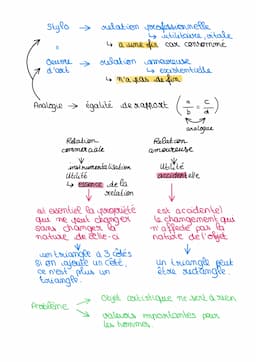 Stylo → relation professionnelle
↳ utilitaire, vitale
↳ a une fin car consommé
=
Oeuvre d'art → relation amoureuse
↳ existentielle
↳ n'a pas de fin
Analogie → égalité de rapport (a/b = c/d)
analogue
Relation commerciale
Relation amoureuse
instrumentalisation
Utilité
↳ essence de la relation
Utilité
accidentelle
est essentiel la propriété
que ne peut changer
sans changer la
nature de celle-ci
est accidentel
le changement qui
n'affecte pas la
nature de l'objet
un triangle a 3 côtés
si on ajoute un côté,
ce n'est plus un
triangle.
un triangle peut
être rectangle.
Problème → objet artistique ne sert à rien
→ valeurs importantes pour
les hommes.